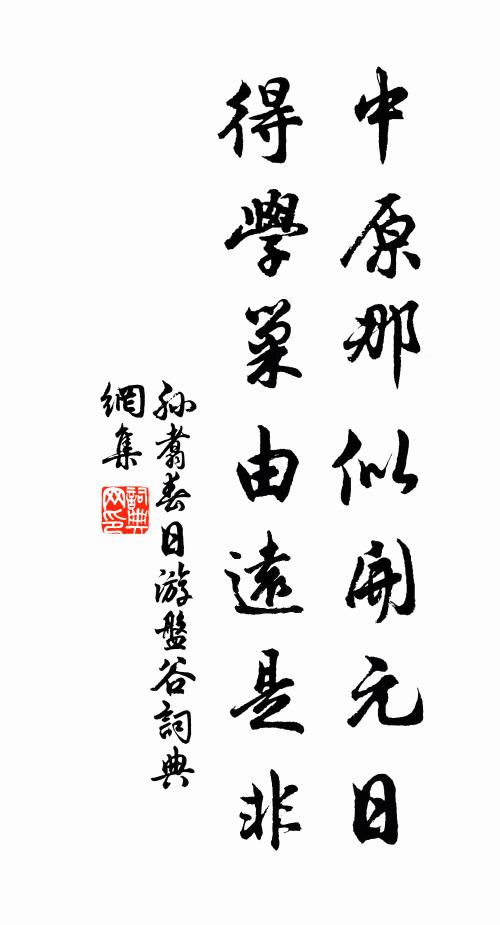 中原那似開元日
得學巢由遠是非
孫翥春日游盤谷詞典
網集
詞典
网印